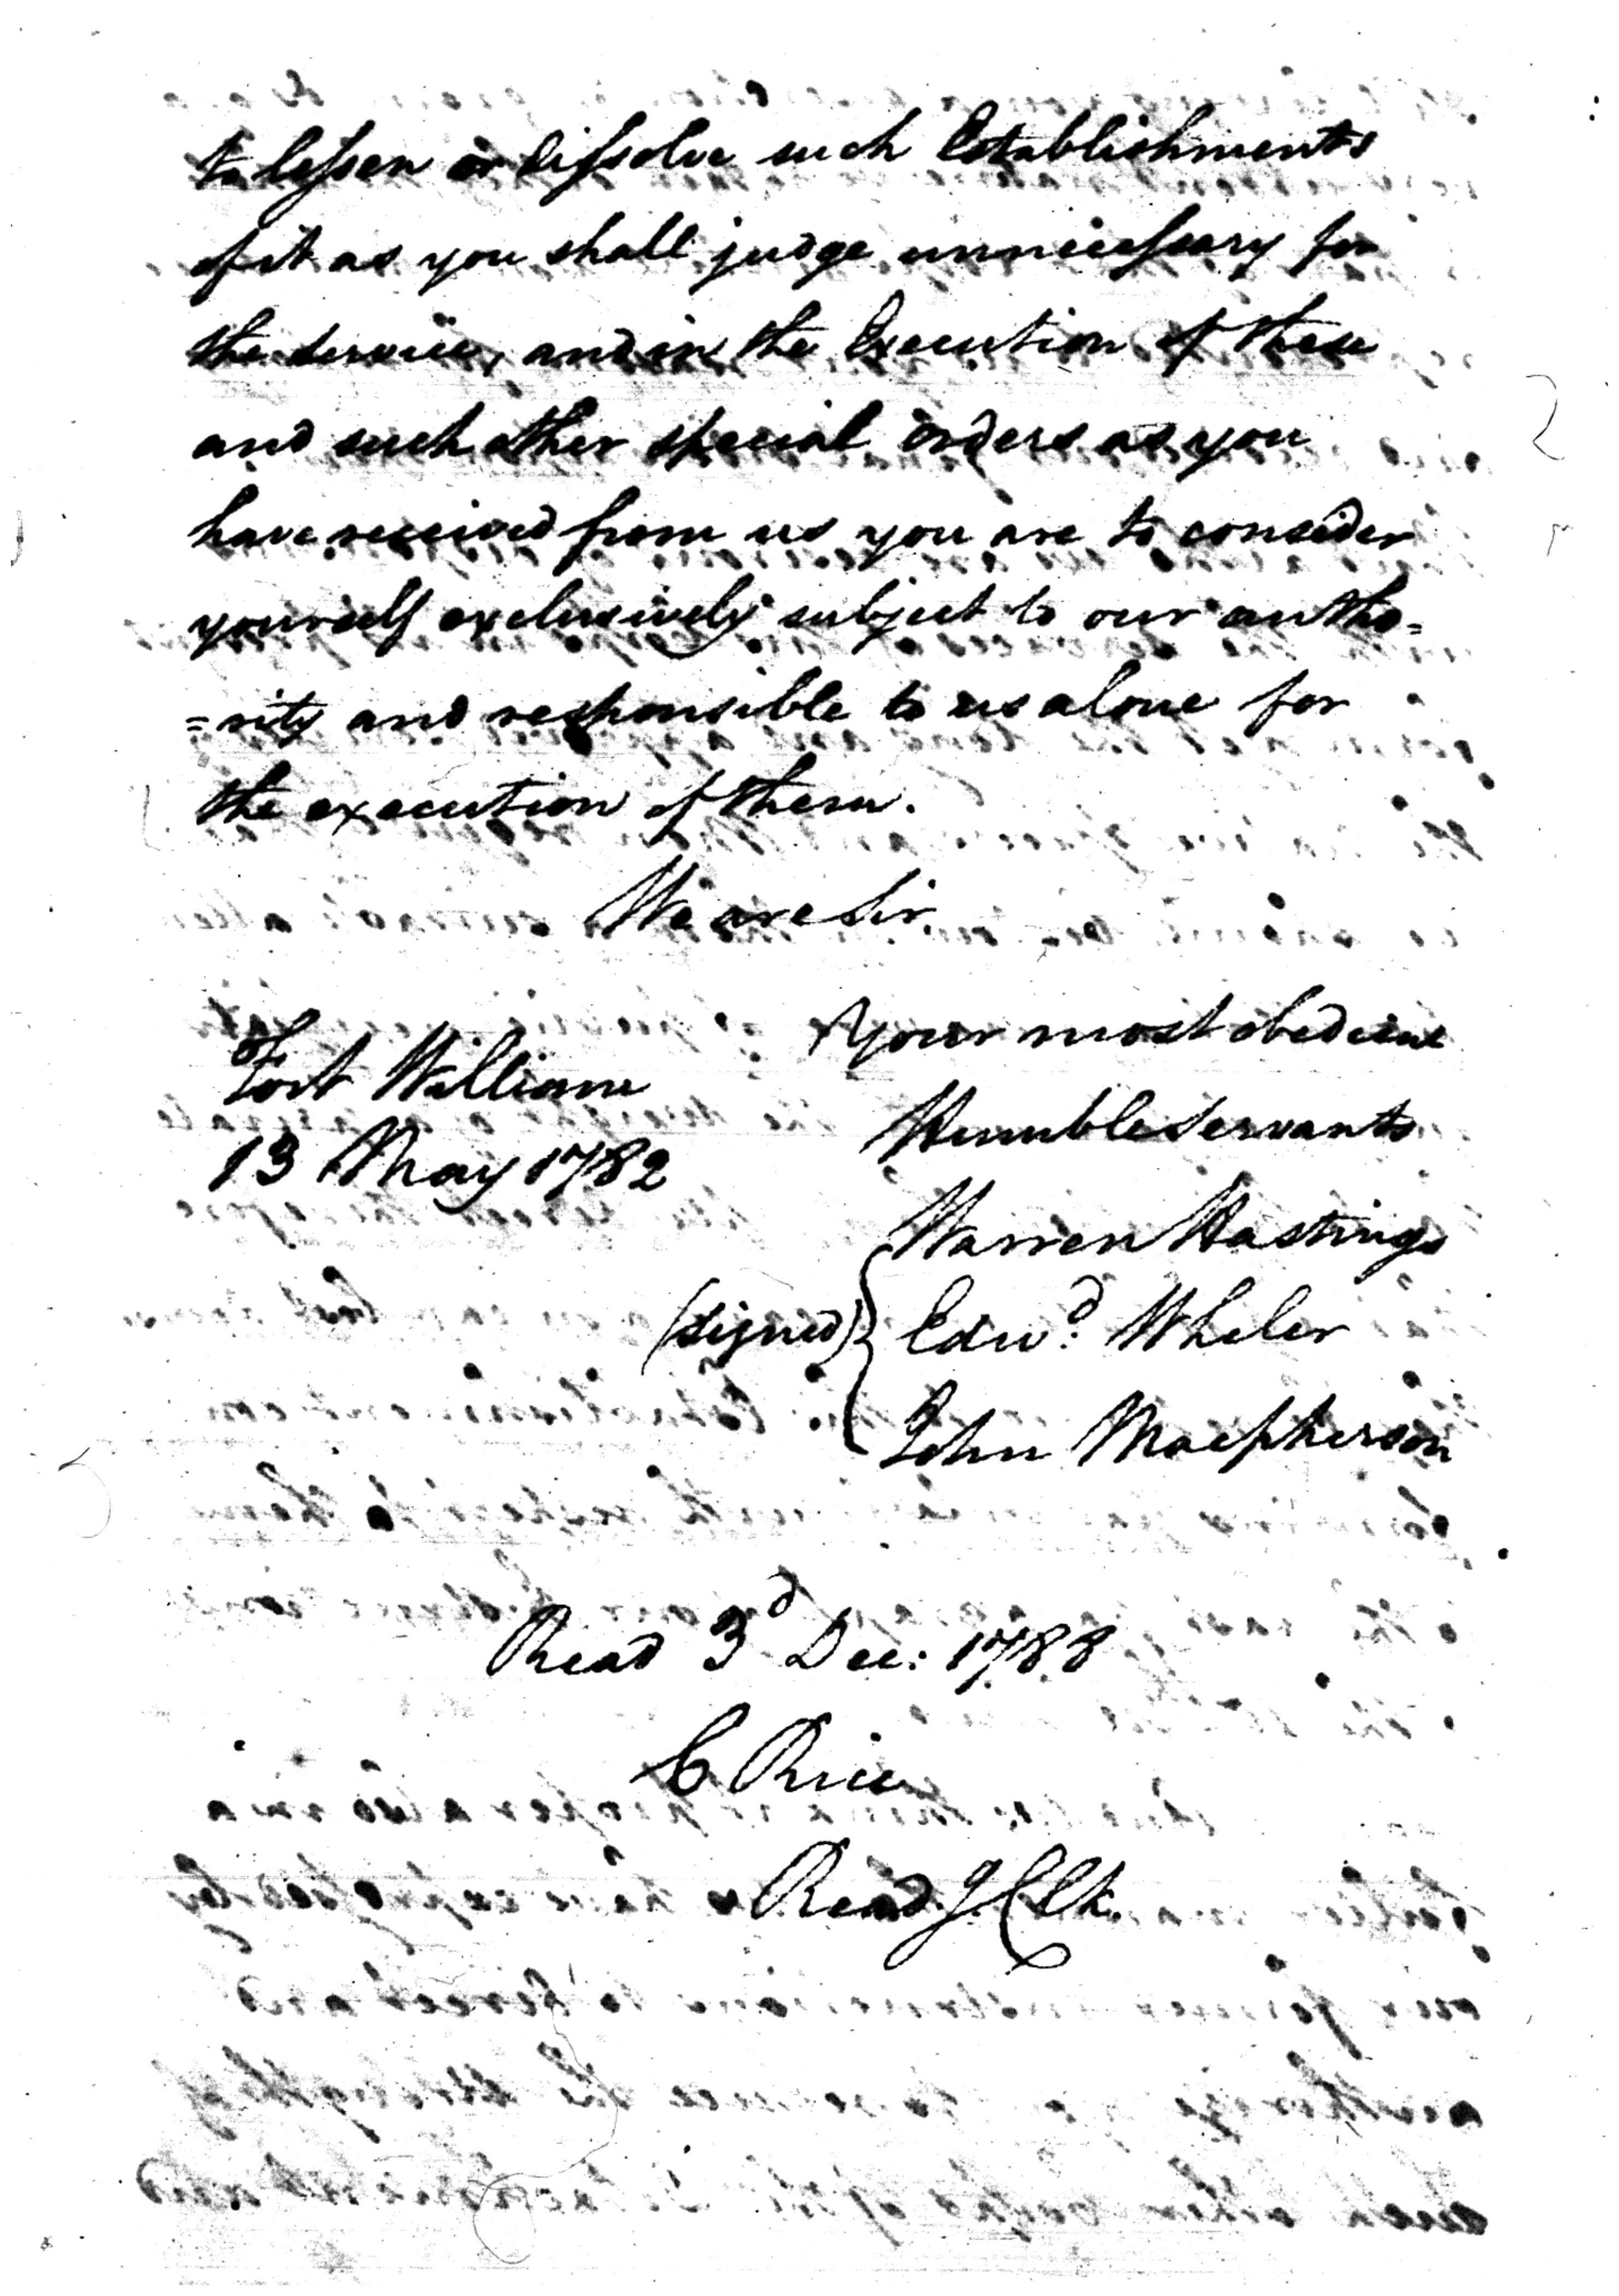 to lessen or dissolve such Establishments
of it as you shall judge unnecessary for
the service, and in the Execution of these
and such other special orders as you
have received from us you are to consider
yourself exclusively subject to our autho=
=rity and responsible to us alone for
the execution of them.
We are Sir,
Your most obedient
Fort William
Humble Servants
13 May 1782
Warren Hastings
(signed) Edwd: Wheler
John Macpherson
Read 3d Dec: 1788
C Rice
Read